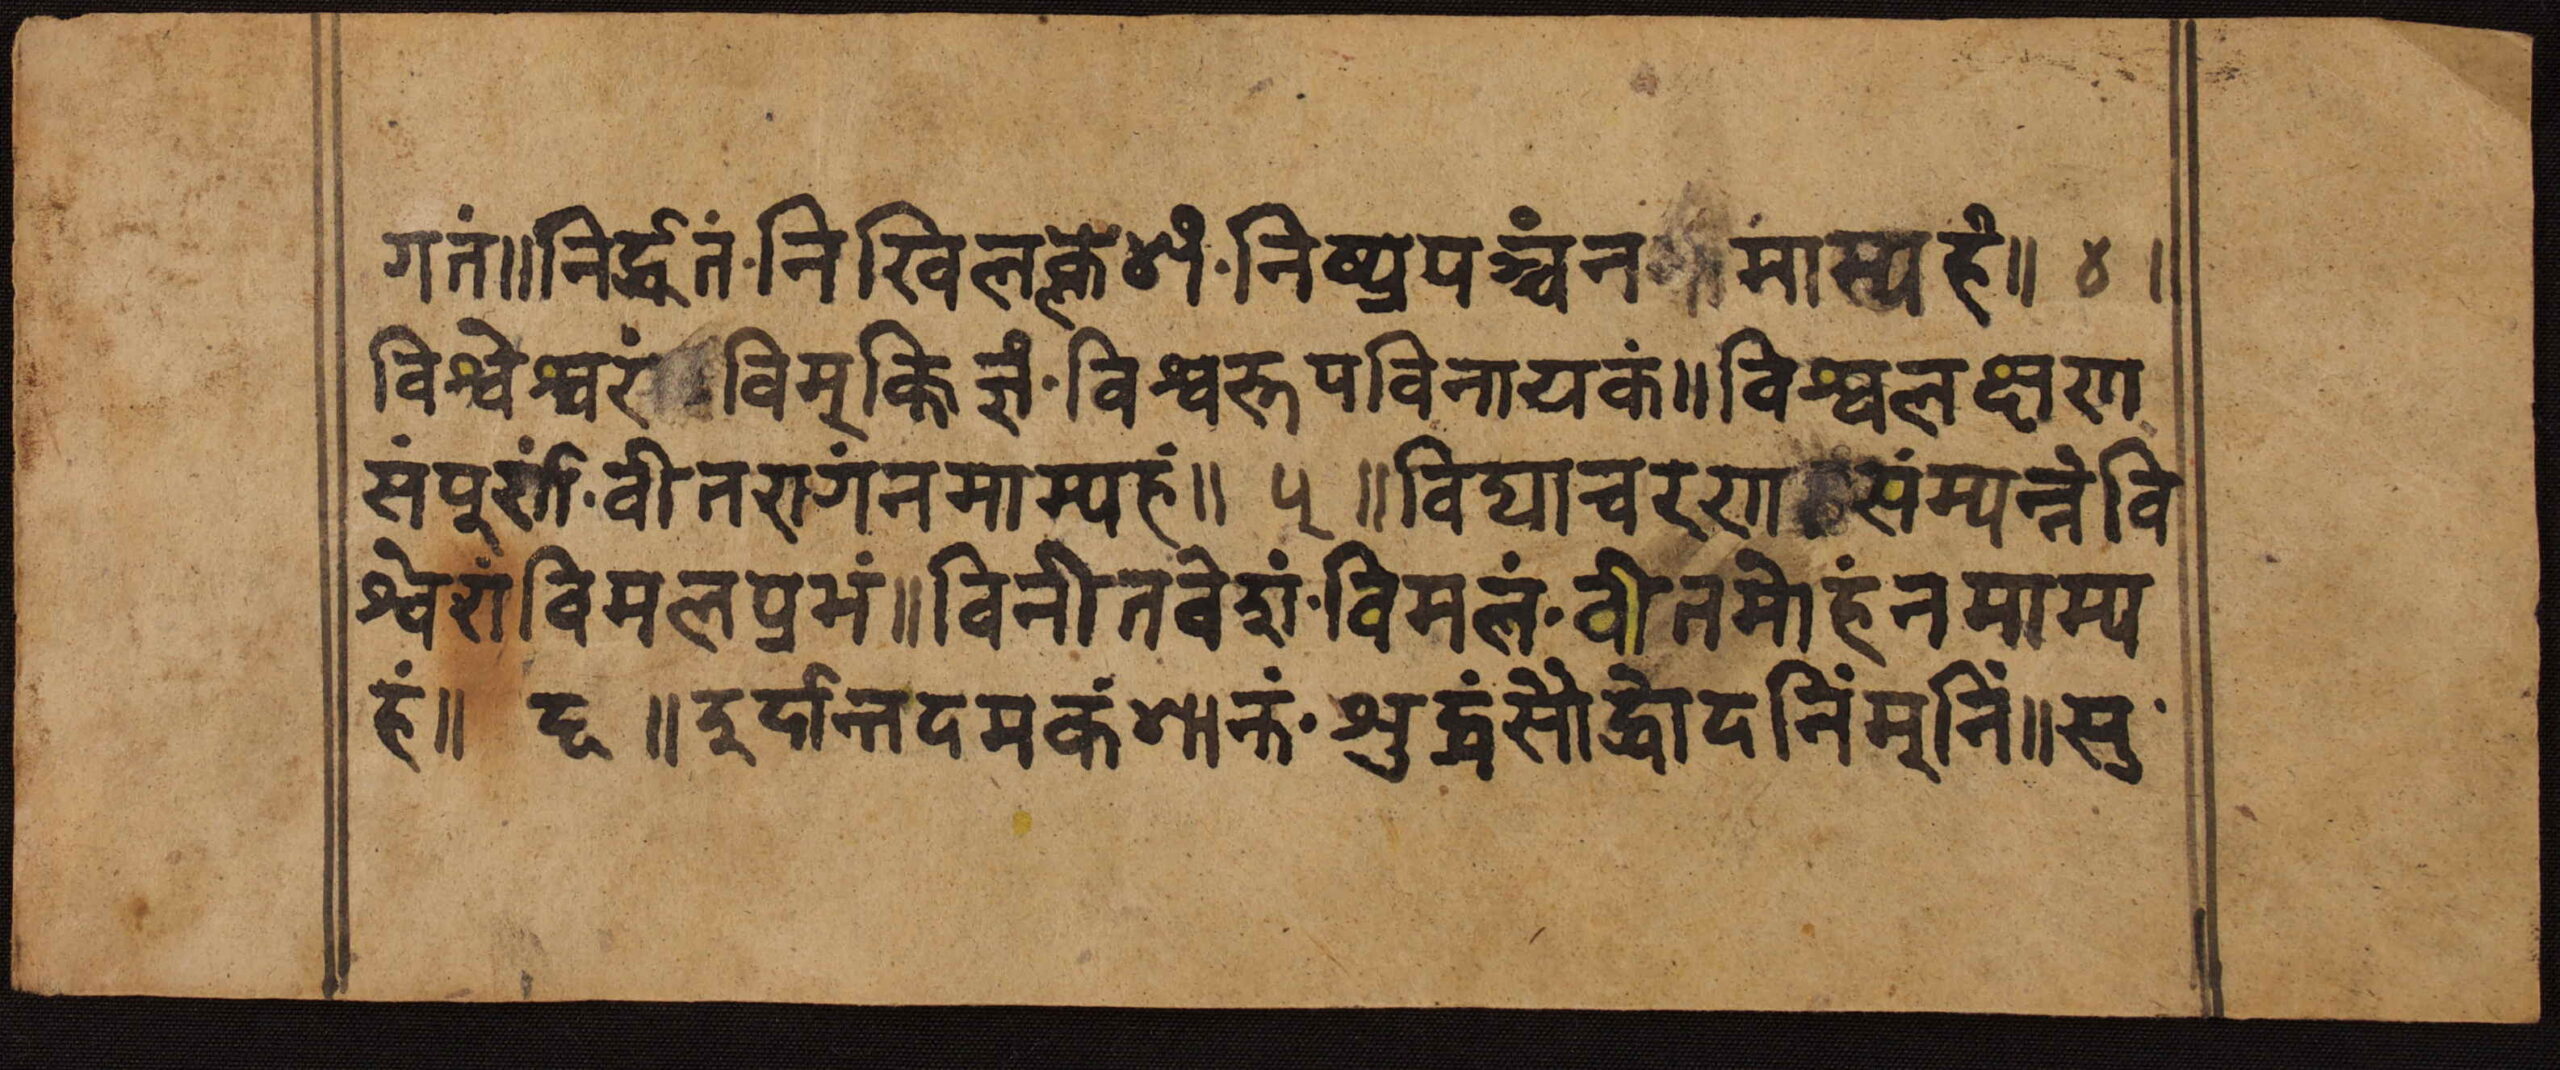 गतं॥निर्द्धूतं·निखिलक्लेशं·निष्प्रपञ्चंन मास्यहं॥ ४ ।
विश्वेश्वरं विमुक्तिज्ञं·विश्वरूपविनायकं॥विश्वलक्षण
संपूर्णं·वीतरागंनमाम्यहं॥ ५ ॥विद्याचरण संम्पन्नंवि
श्वेशंविमलप्रभं॥विनीतवेशं·विमलं·वीतमोहंनमाम्य
हं॥ ६ ॥दुर्दान्तदमकंशान्तं·शुद्धंसौद्धोदनिंमुनिं॥सु